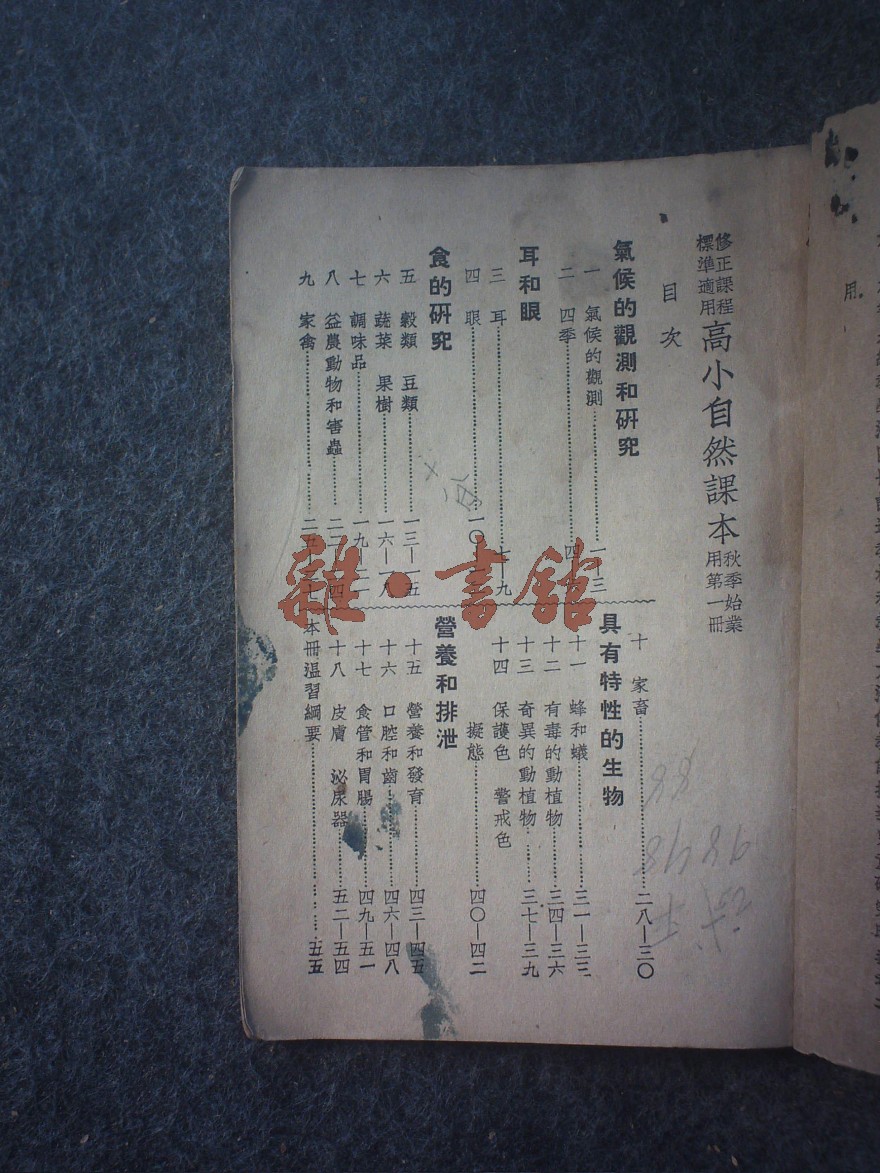 修正課程
標準適用
高小自然課本
秋季始業
用第一冊
目次
氣候的觀測和研究
一 氣候的觀測 一—三
二 四季 四
耳和眼
三 耳 七—九
四 眼 一〇
食的研究
五 穀類 豆類 一三—一五
六 蔬菜 果樹 一六—一八
七 調味品 一九
八 益農動物和害蟲
九 家禽
十 家畜 二八—三〇
具有特性的生物
十一 蜂和蟻 三一—三三
十二 有毒的動植物 三四—三六
十三 奇異的動植物 三七—三九
十四 保護色 警戒色
擬態 四〇—四二
營養和排泄
十五 營養和發育 四三—四五
十六 口腔和齒 四六—四八
十七 食管和胃腸 四九—五一
十八 皮膚 泌尿器 五二—五四
本冊溫習綱要 五五
雜·書館
用